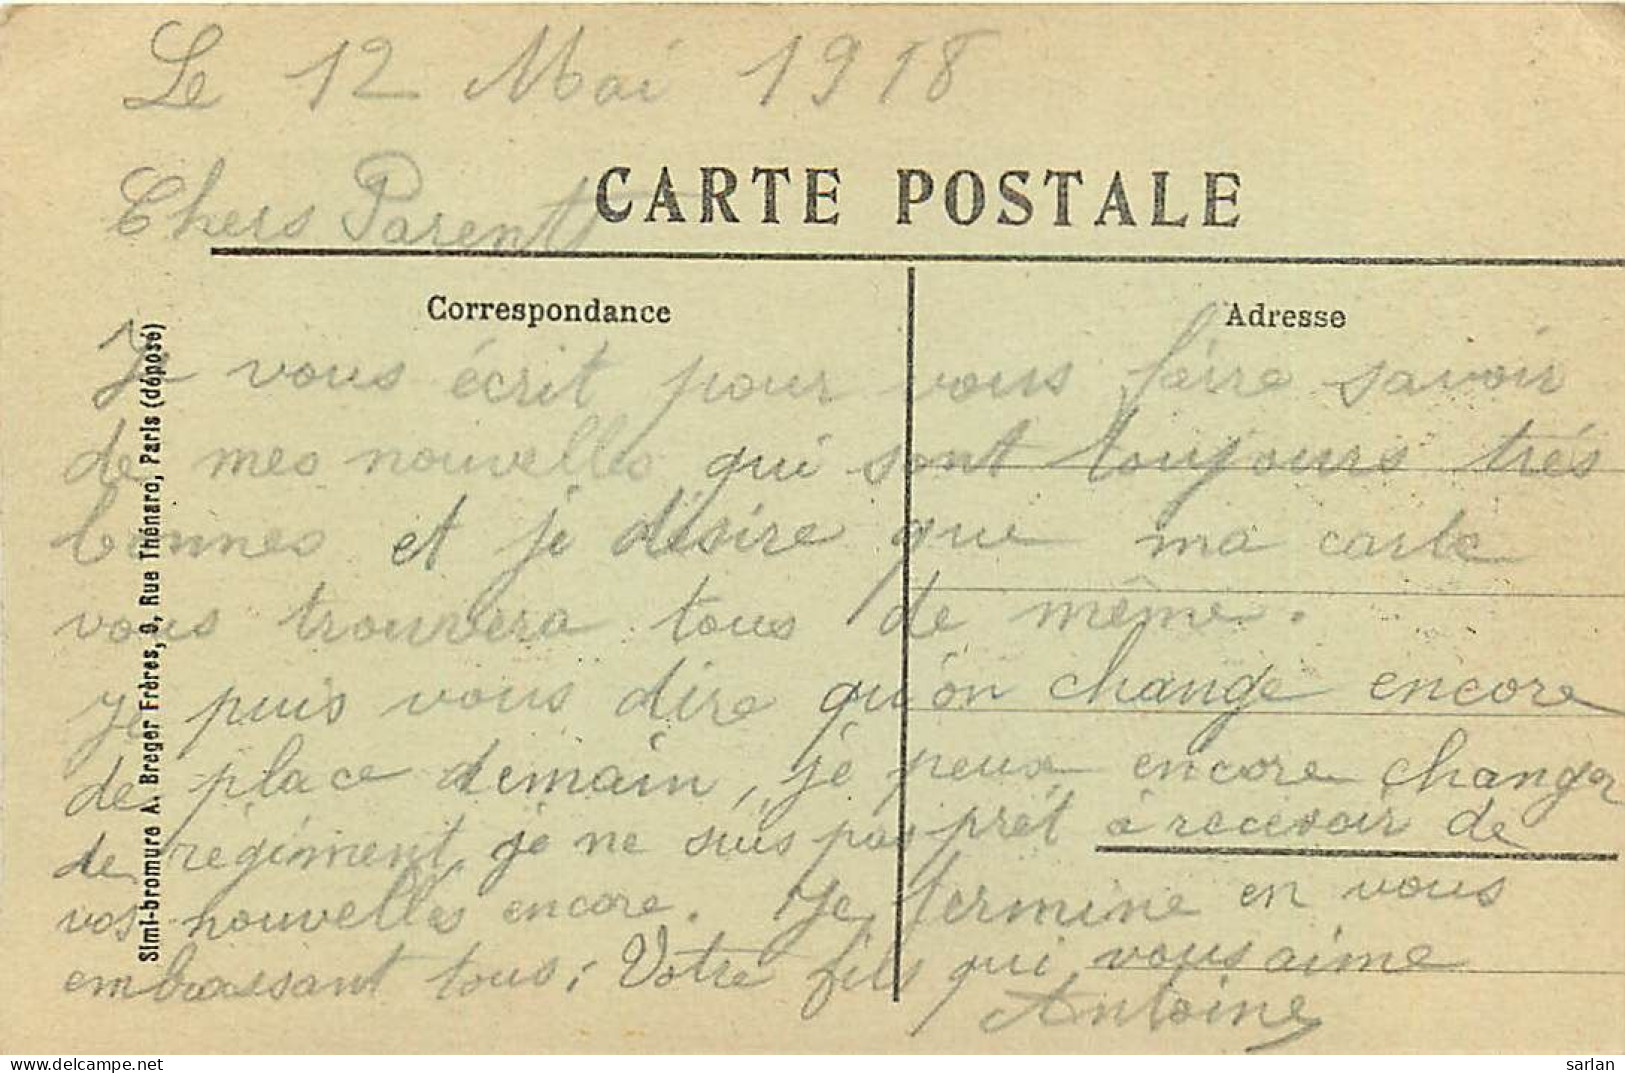 Le 12 Mai 1918
CARTE POSTALE
Chers Parents
Correspondance
Adresse
Je vous écrit pour vous faire savoir
de mes nouvelles qui sont toujours très
bonnes et je désire que ma carte
vous trouvera tous de même.
Je puis vous dire qu'on change encore
de place demain, je peux encore changer
de régiment, je ne suis pas prêt à recevoir de
vos nouvelles encore. Je termine en vous
embrassant tous; Votre fils qui vous aime
Antoine
Simi-bromure A. Breger Frères, 9, Rue Thénard, Paris (déposé)
sarlan